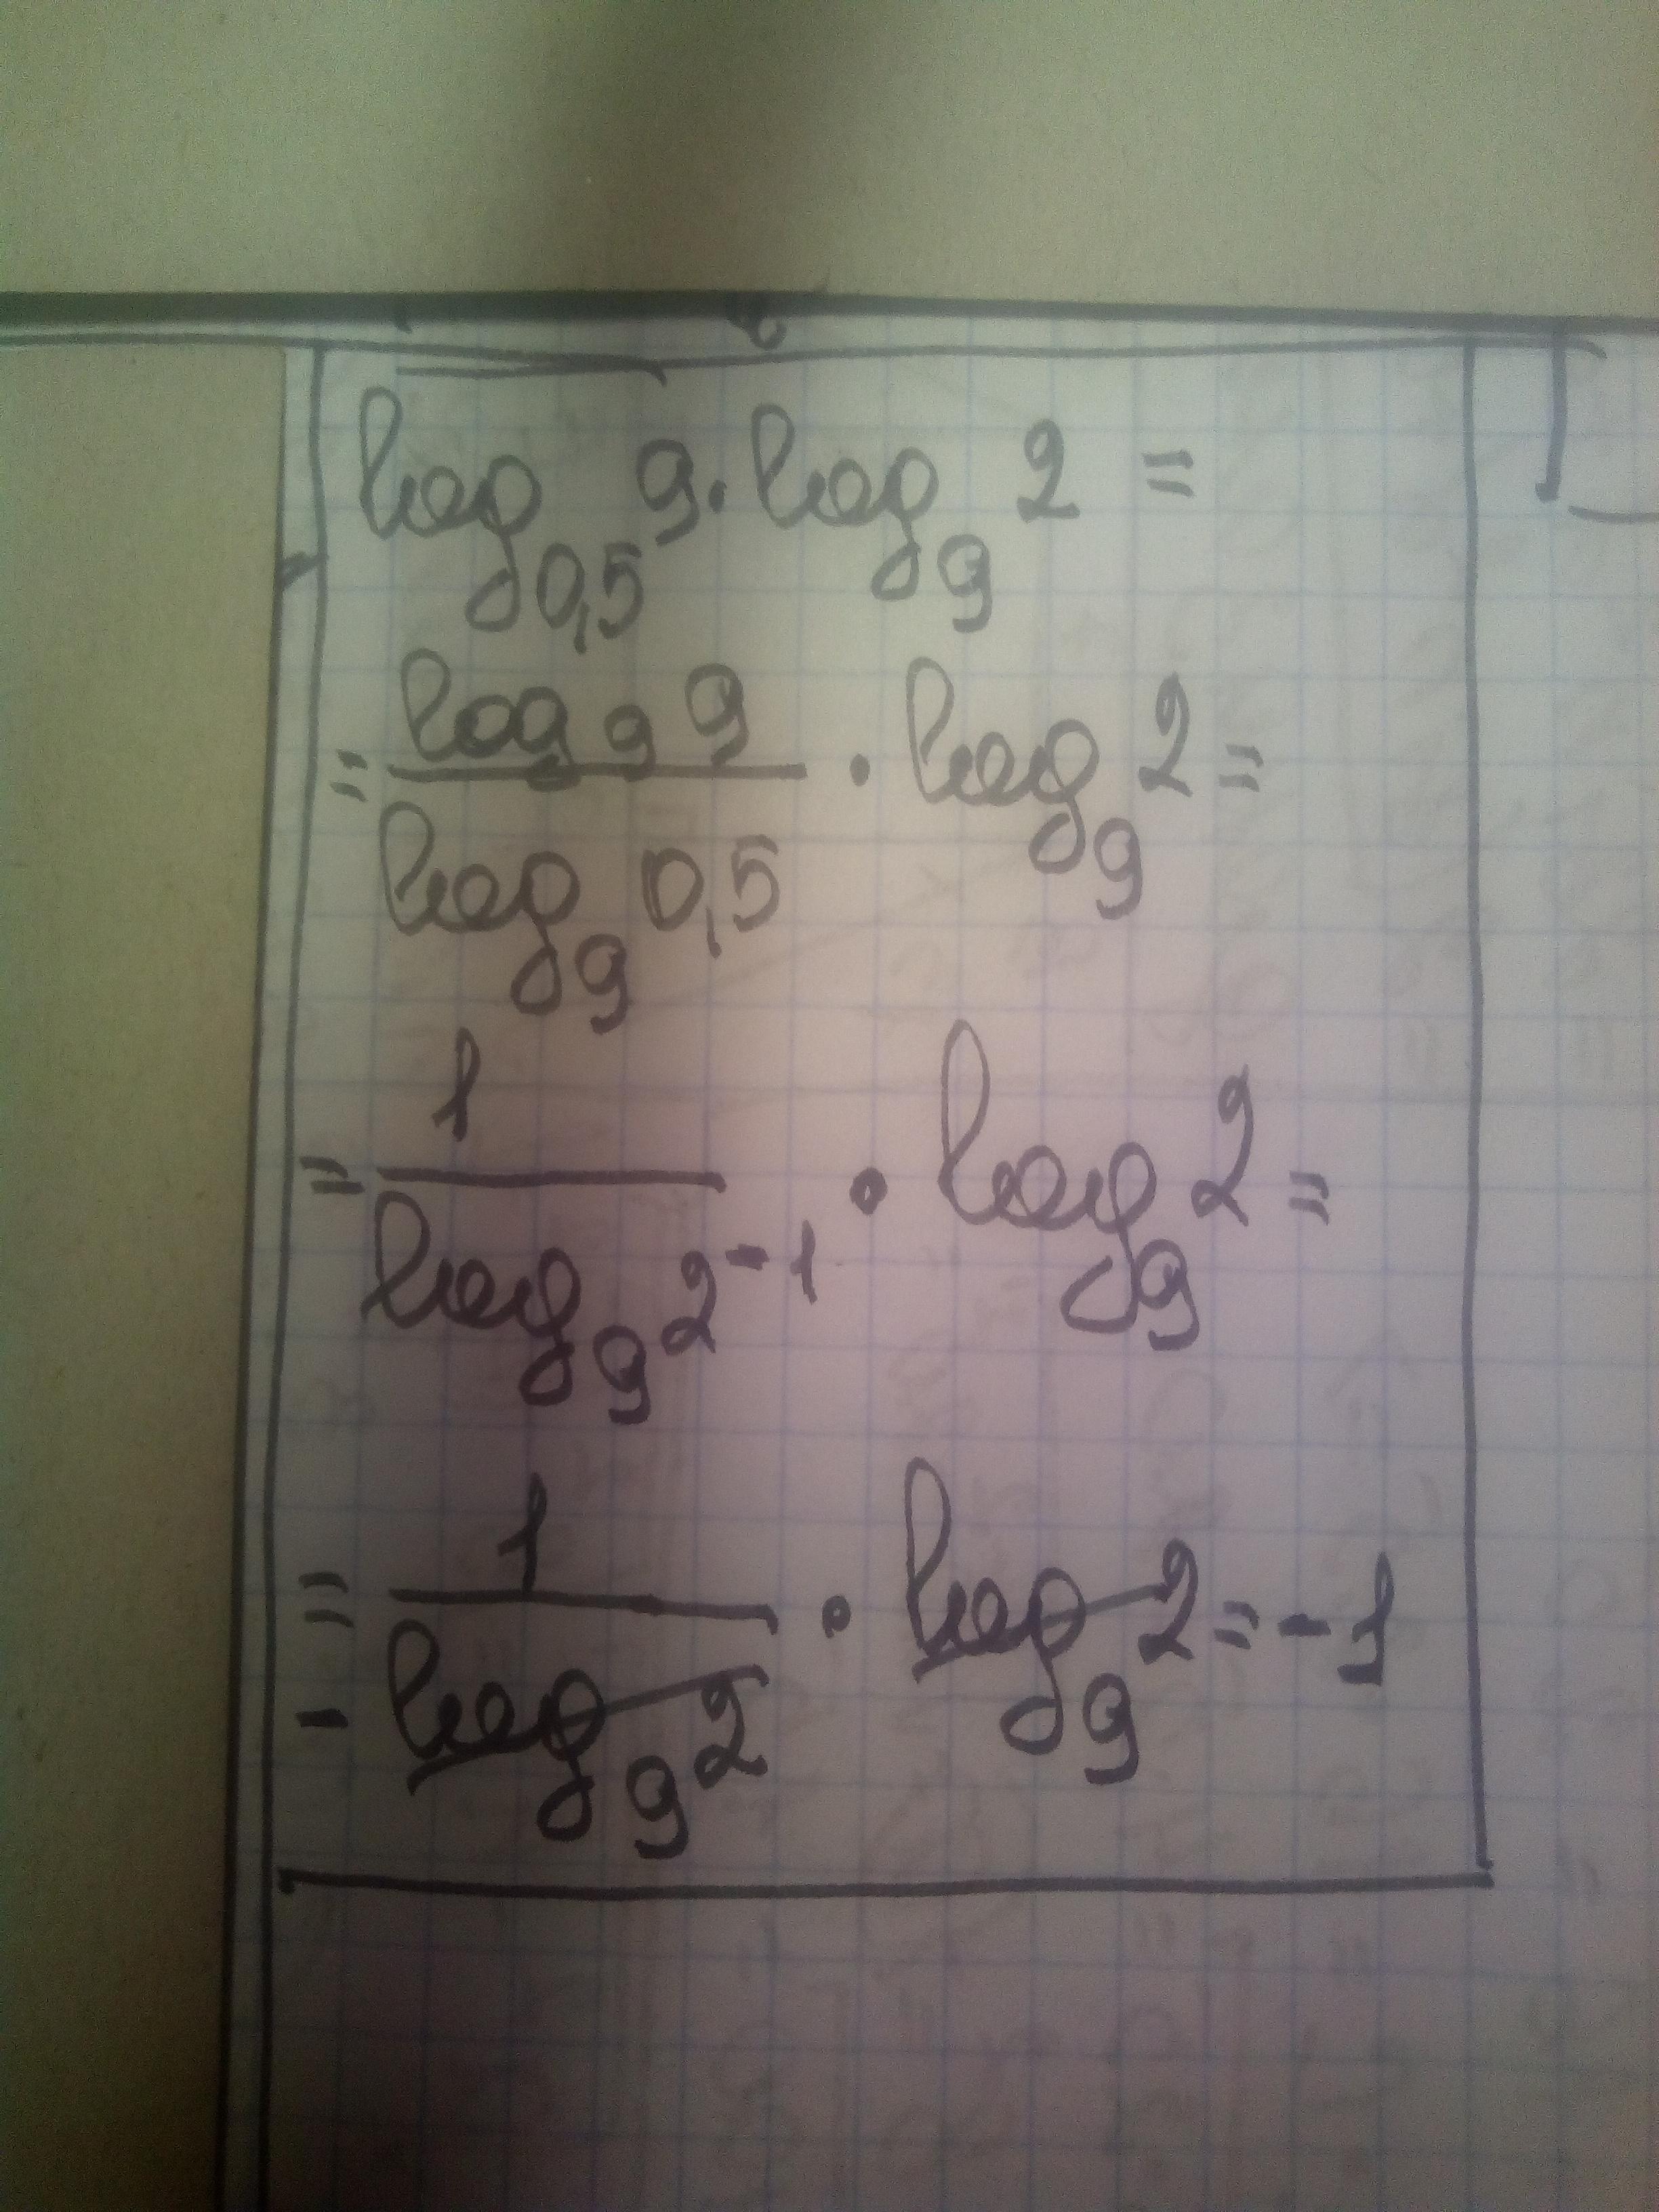 log₀,₅ 9 · log₉ 2 =
= log₉ 9 / log₉ 0,5 · log₉ 2 =
= 1 / log₉ 2⁻¹ · log₉ 2 =
= 1 / - log₉ 2 · log₉ 2 = -1